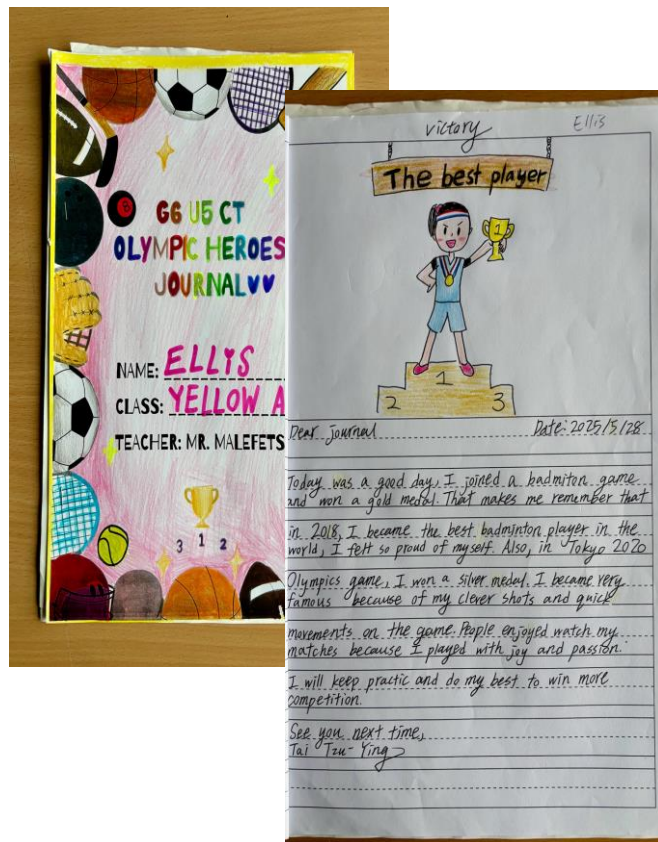 G6 U5 CT
OLYMPIC HEROES
JOURNAL
NAME: ELLIS
CLASS: YELLOW A
TEACHER: MR. MALEFETS
3 1 2
victory
Ellis
The best player
1
1
2
3
Dear journal Date: 2025/5/28
Today was a good day, I joined a badmiton game
and won a gold medal. That makes me remember that
in 2018, I became the best badminton player in the
world, I felt so proud of myself. Also, in Tokyo 2020
Olympics game, I won a silver medal. I became very
famous because of my clever shots and quick
movements on the game. People enjoyed watch my
matches because I played with joy and passion.
I will keep practic and do my best to win more
competition.
See you next time,
Tai Tzu-Ying